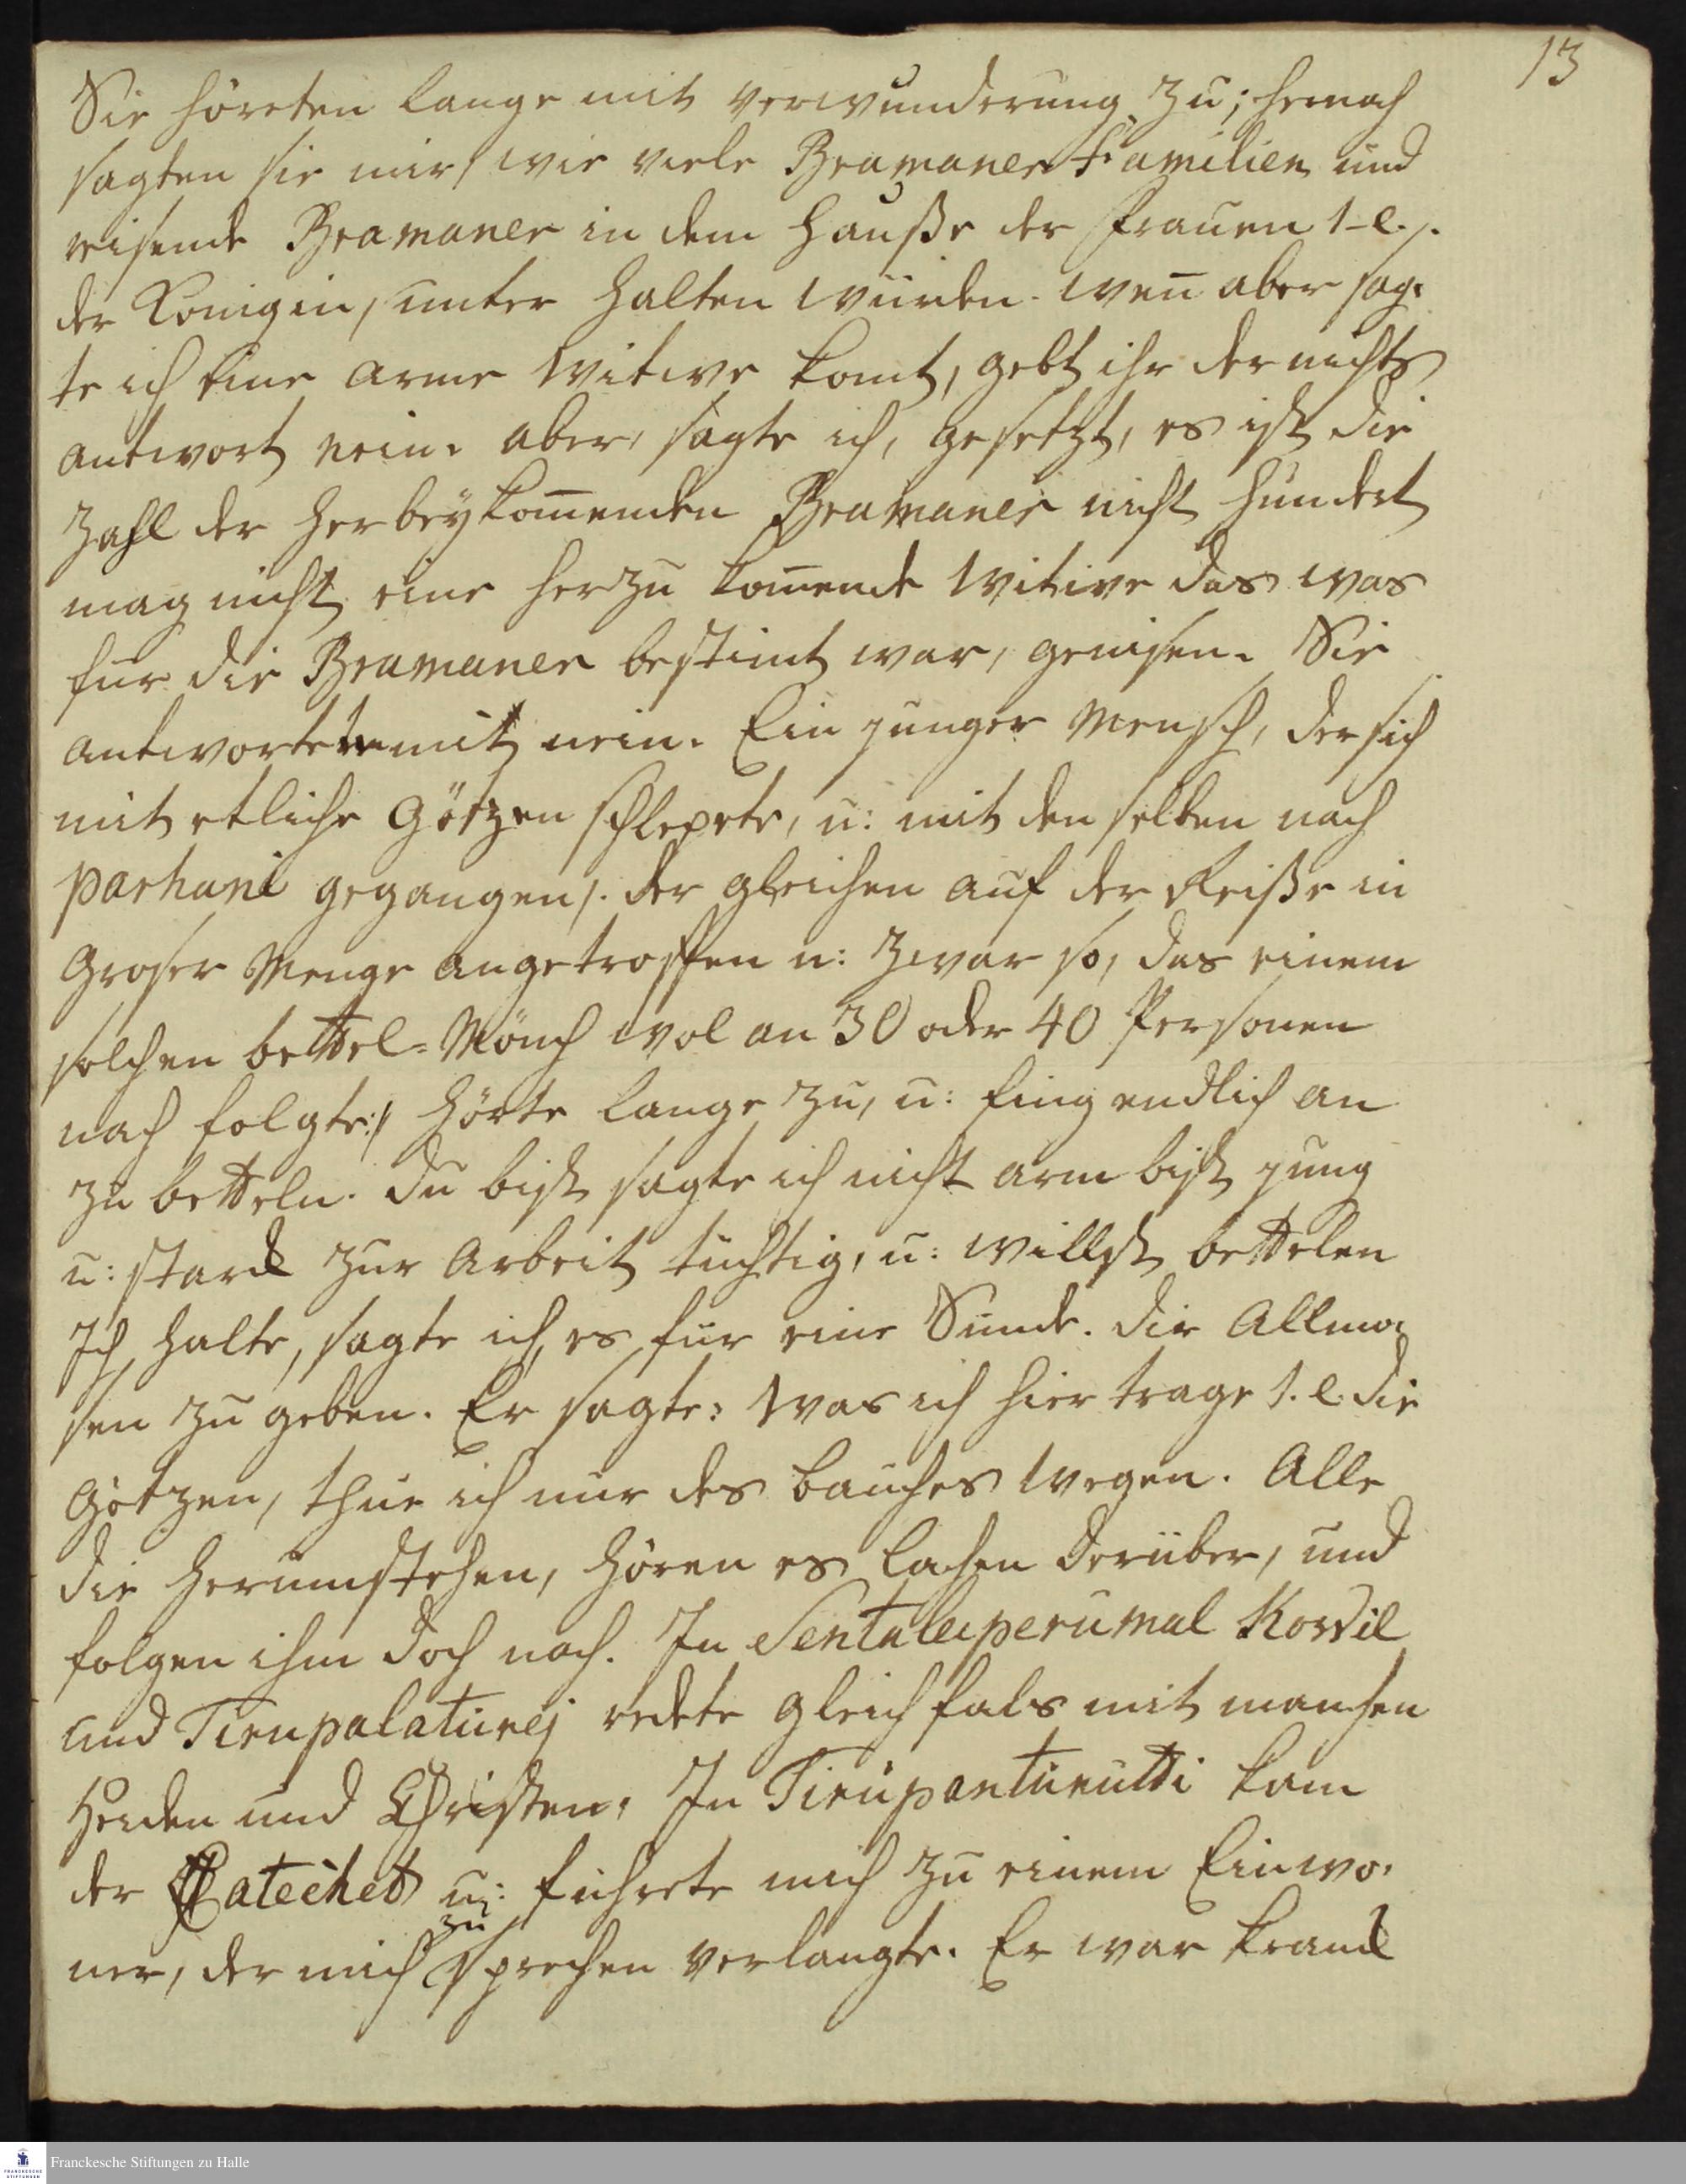 13
Sie höreten lange mit verwunderung zu; hernach
sagten sie mir, wie viele Bramaner Familien und
reisende Bramaner in dem Hauße der Frauen 1-e./.
der Königin, unter halten würden. wen̄ aber sag=
te ich eine arme Witwe komt, gebt ihr der nichts
antwort nein. aber, sagte ich, gesetzt, es ist die
Zahl der herbeykom̄enden Bramaner nicht hundert
mag nicht eine herzu kom̄ende Witwe das was
für die Bramaner bestimt war, genisen. Sie
antworteten mit nein. Ein junger Mensch, der sich
mit etliche Götzen schlepete, u: mit den selben nach
parhani gegangen /. der gleichen auf der Reiße in
Groser Menge angetroffen u: zwar so, das einem
solchen bettel=Mönch wol an 30 oder 40 Personen
nach folgte:/ hörte lange zu, u: fing endlich an
zu betteln. du bist sagte ich nicht arm bist jung
u: starck zur Arbeit tüchtig, u: willst bettelen
Ich halte, sagte ich, es für eine Sünde. dir Allmo=
sen zu geben. Er sagte: Was ich hier trage 1. e. die
Götzen, thue ich nur des bauches wegen. Alle
die herumstehen, hören es lachen darüber, und
folgen ihm doch nach. In Sentaleiperumal Kowil
und Tirupalaturej redete gleich fals mit manchen
Heiden und Christen. In Tirupanturutti kam
der Catechet u: führete mich zu einem Einwo=
ner, der mich zu sprechen verlangte. Er war kranck
Franckesche Stiftungen zu Halle